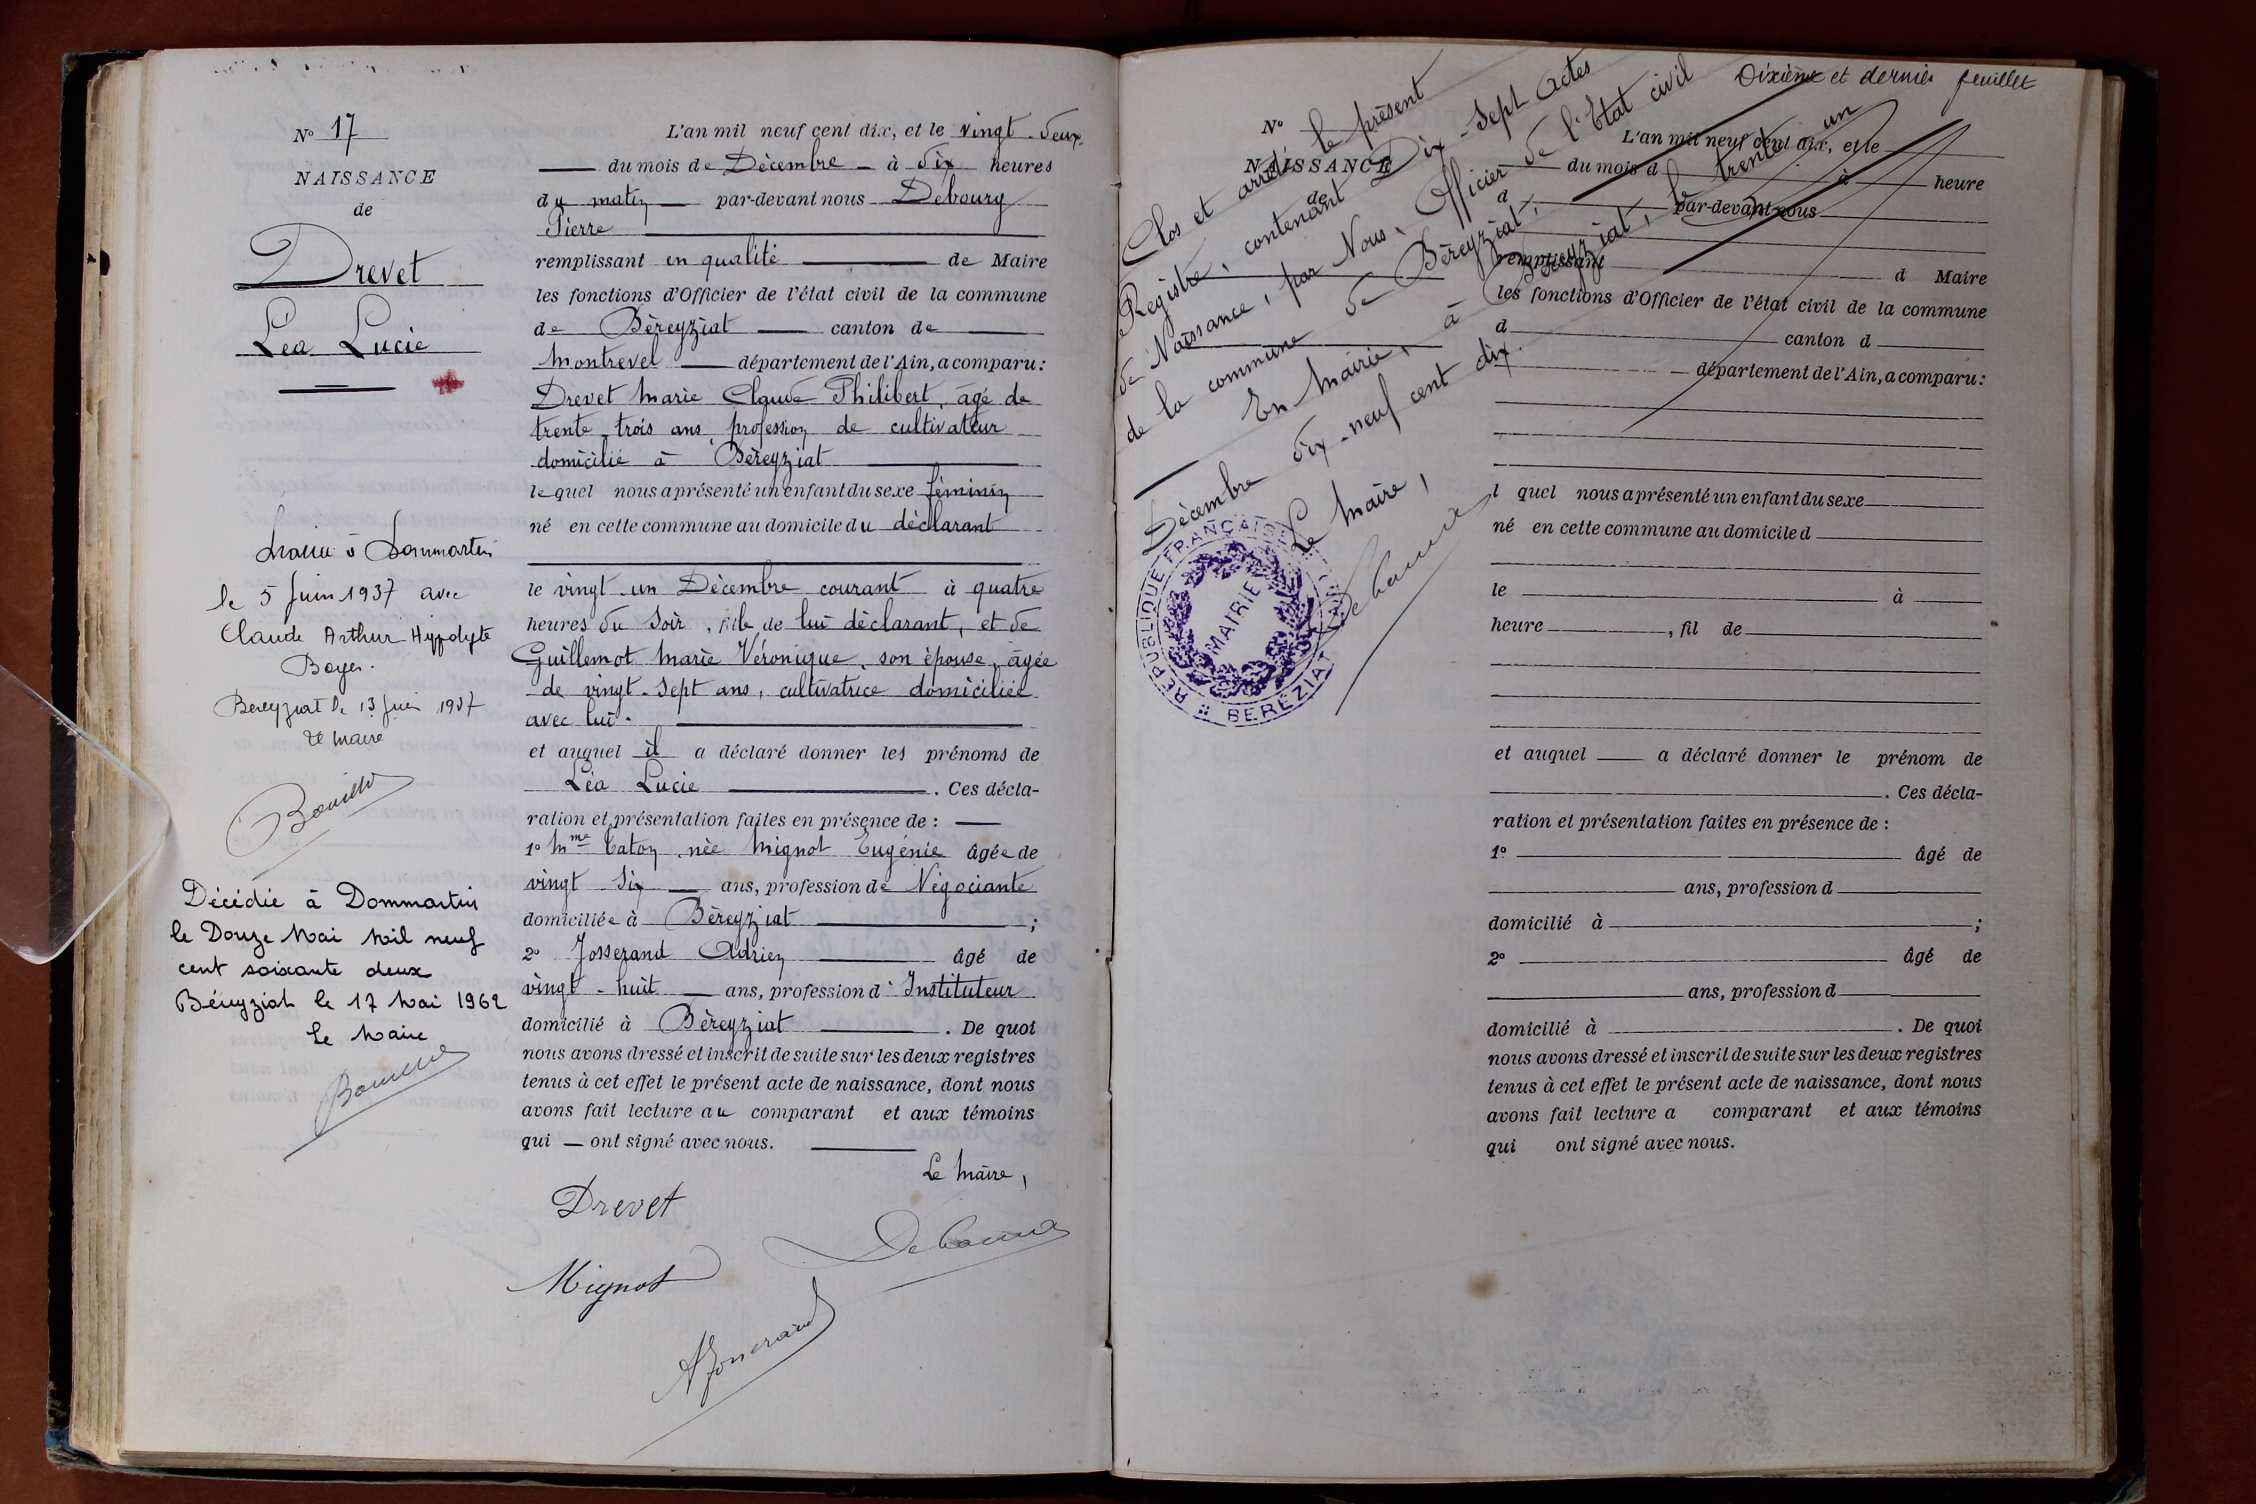 N° 17
NAISSANCE
de
Drevet
Léa Lucie
L'an mil neuf cent dix, et le vingt-deux
du mois de Décembre à dix heures
du matin par-devant nous
Pierre
remplissant en qualité de Maire
les fonctions d'Officier de l'état civil de la commune
de Béreyziat canton de
Montrevel département de l'Ain, a comparu:
Drevet Marie Claude Philibert, âgé de
trente-trois ans, profession de cultivateur
domicilié à Béreyziat
lequel nous a présenté un enfant du sexe féminin
né en cette commune au domicile du déclarant
le vingt-un Décembre courant à quatre
heures du soir, fille de lui déclarant, et de
Guillemot Marie Véronique, son épouse, âgée
de vingt-sept ans, cultivatrice domiciliée
avec lui.
et auquel il a déclaré donner les prénoms de
Léa Lucie. Ces décla-
ration et présentation faites en présence de :
1° Mme Caton née Mignot Eugénie âgée de
vingt six ans, profession de Négociante
domiciliée à Béreyziat ;
2° Josserand Adrien âgé de
vingt-huit ans, profession d'Instituteur
domicilié à Béreyziat. De quoi
nous avons dressé et inscrit de suite sur les deux registres
tenus à cet effet le présent acte de naissance, dont nous
avons fait lecture au comparant et aux témoins
qui ont signé avec nous.
Le Maire,
Drevet
Mignot
AJosserand
à Dommartin
le 5 Juin 1937 avec
Claude Arthur Hyppolyte
Boyer.
Bereyziat le 13 Juin 1937
Le Maire
Décédée à Dommartin
le Douze Mai Mil neuf
cent soixante deux
Béreyziat le 17 Mai 1962
Le Maire
Dixième et dernier feuillet
Clos et arrêté le présent
Registre, contenant Dix-Sept Actes
de Naissance, par Nous, Officier de l'Etat civil
de la commune de Béreyziat,
En Mairie, à Béreyziat, le trente un
Décembre dix-neuf cent dix.
Le Maire,
RÉPUBLIQUE FRANÇAISE
MAIRIE
BEREZIAT (AIN)
N°
NAISSANCE
de
L'an mil neuf cent dix, et le
du mois d à heure
d par-devant nous
remplissant d Maire
les fonctions d'Officier de l'état civil de la commune
d canton d
département de l'Ain, a comparu:
l quel nous a présenté un enfant du sexe
né en cette commune au domicile d
le à
heure , fil de
et auquel a déclaré donner le prénom de
. Ces décla-
ration et présentation faites en présence de :
1° âgé de
ans, profession d
domicilié à ;
2° âgé de
ans, profession d
domicilié à . De quoi
nous avons dressé et inscrit de suite sur les deux registres
tenus à cet effet le présent acte de naissance, dont nous
avons fait lecture a comparant et aux témoins
qui ont signé avec nous.